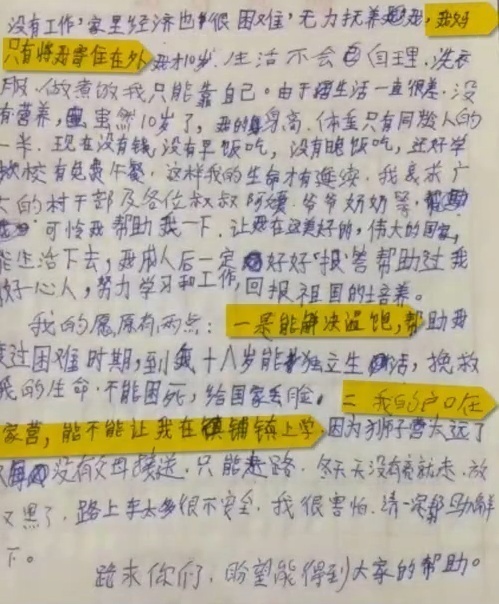 没有工作,家里经济也很困难,无力抚养我,我妈
只有将我寄住在外,我才10岁,生活不会自理,洗衣
服、做煮饭我只能靠自己。由于生活一直很差,没
有营养,虽然10岁了,我的身高、体重只有同龄人的
一半。现在没有钱,没有早饭吃,没有晚饭吃,还好学
校有免费午餐,这样我的生命才有延续,我哀求广
大的村干部及各位叔叔阿姨,爷爷奶奶等,
可怜我帮助我一下,让我在这美好的,伟大的国家,
能生活下去,我成人后一定好好报答帮助过我
的好心人,努力学习和工作,回报祖国的培养。
我的愿原有两点:一是能解决温饱,帮助我
度过困难时期,到我十八岁能独立生活,挽救
我的生命,不能困死,给国家丢脸,二我的户口在
家营,能不能让我在镇铺镇上学,因为狮子营太远了
没有父母接送,只能走路,冬天天没有亮就走,放
又黑了,路上车太多很不安全,我很害怕,请一定帮助解
下。
跪求你们,盼望能得到大家的帮助。